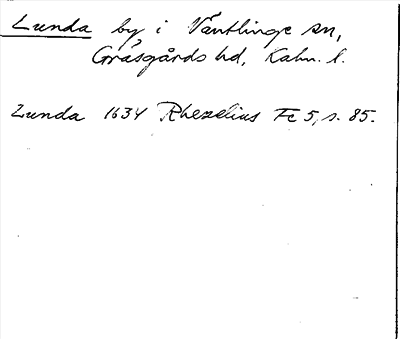 Lunda by i Ventlinge sn,
Gräsgårds hd, Kalm. l.
Lunda 1634 Rhezelius Fc 5, s. 85.